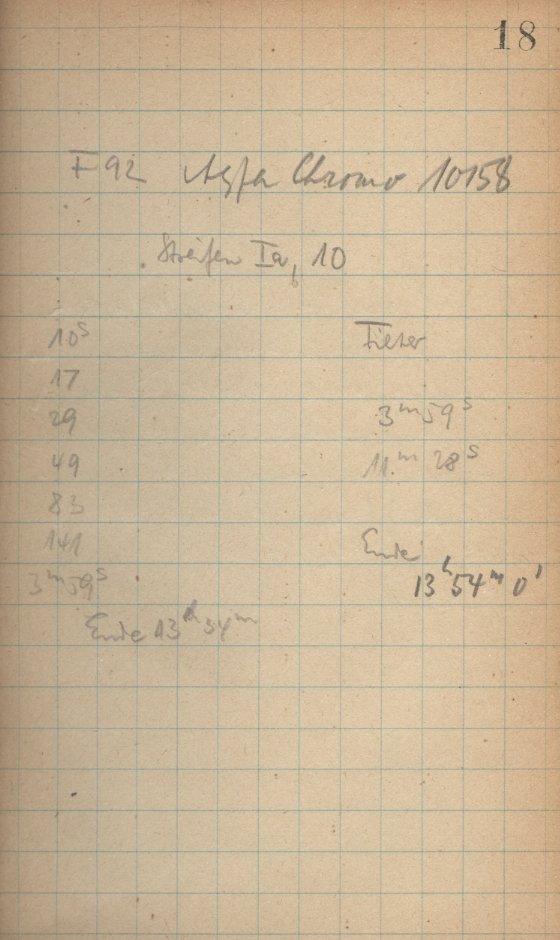 18
F 92 Agfa Chromo 10158
Streifen Ia, 10
10s
17
29
49
83
141
3m 59s
Ende 13h 34m
Filter
3m 59s
11m 28s
Ende
13h 54m 0'